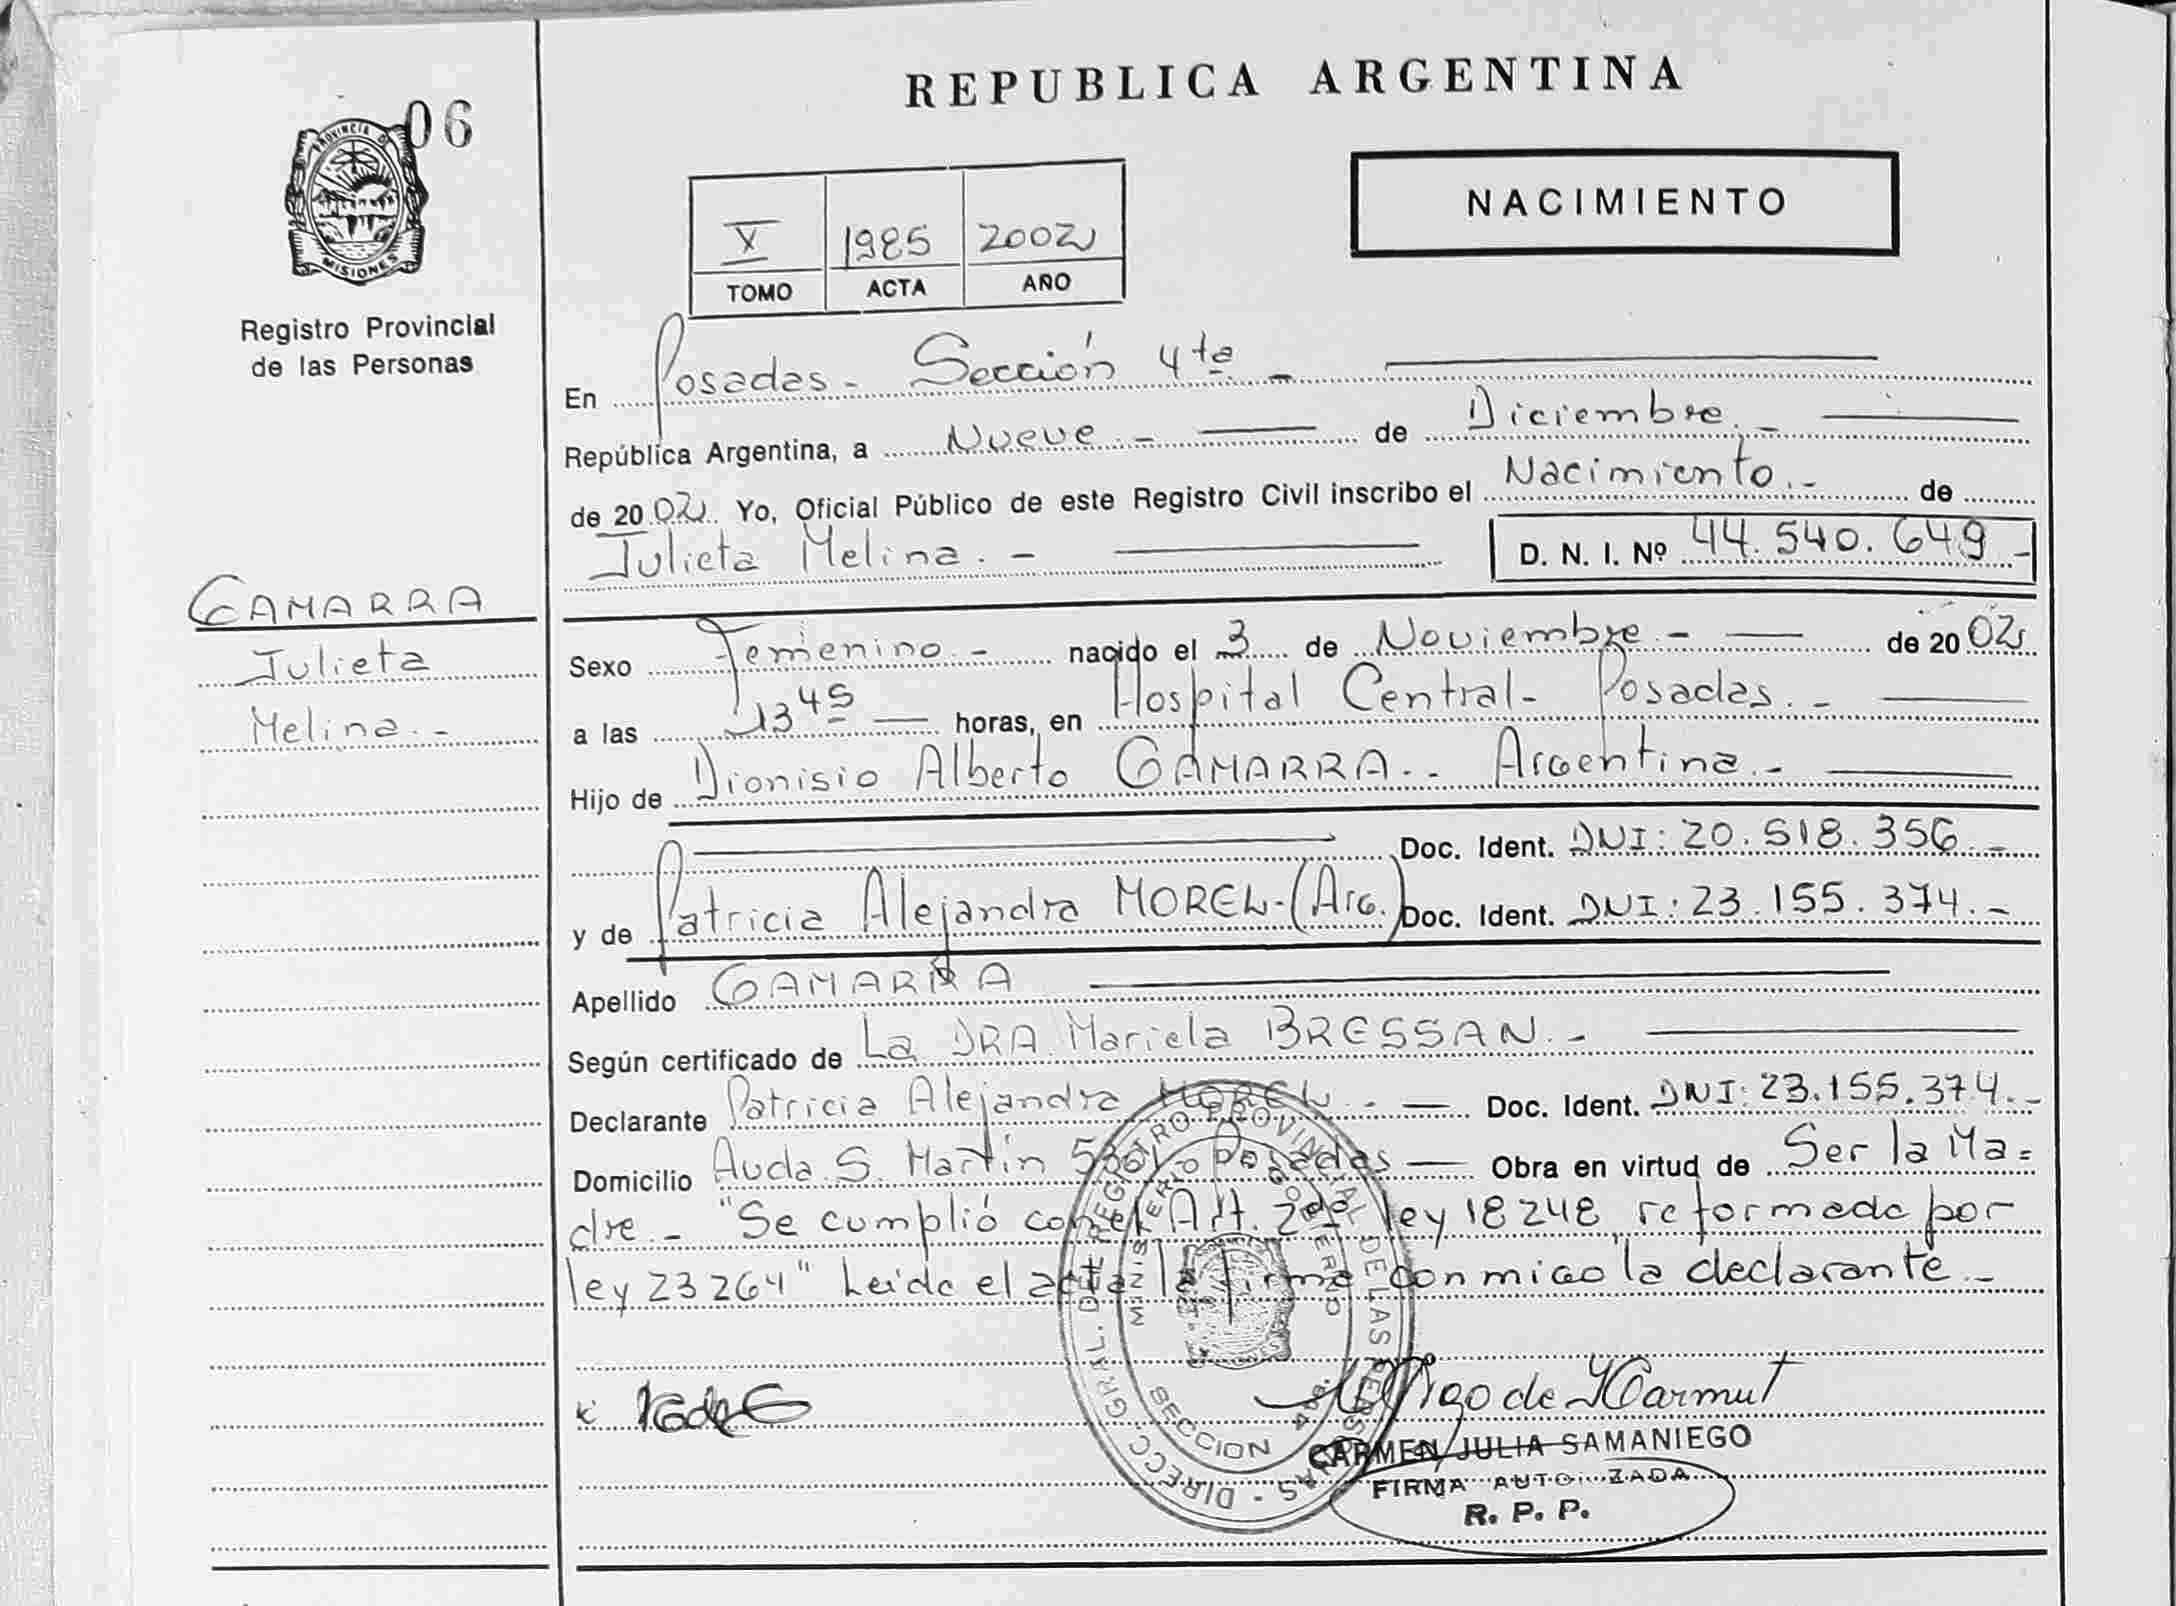 REPUBLICA ARGENTINA
06
PROVINCIA DE
MISIONES
Registro Provincial
de las Personas
NACIMIENTO
V 1985 2002
TOMO ACTA AÑO
En Posadas - Sección 4ta -
República Argentina, a Nueve.- de Diciembre.-
de 2002. Yo, Oficial Público de este Registro Civil inscribo el Nacimiento.- de
Julieta Melina.- D. N. I. Nº 44.540.649-
GAMARRA
Julieta
Melina.-
Sexo Femenino.- nacido el 3 de Noviembre.- de 2002
a las 13 45 horas, en Hospital Central- Posadas.-
Hijo de Dionisio Alberto GAMARRA.- Argentina.-
Doc. Ident. DNI: 20.518.356.-
y de Patricia Alejandra MOREL-(Arg.) Doc. Ident. DNI: 23.155.374.-
Apellido GAMARRA
Según certificado de La DRA. Mariela BRESSAN.-
Declarante Patricia Alejandra MOREL.- Doc. Ident. DNI: 23.155.374.-
Domicilio Avda. S. Martín Posadas Obra en virtud de Ser la Ma=
dre.- "Se cumplió con el Art. 2do ley 18248 reformado por
ley 23264" Leída el acta la firma conmigo la declarante.-
DIRECC. GRAL. DEL REGISTRO PROVINCIAL DE LAS PERSONAS -
MINISTERIO DE GOBIERNO
SECCION 4ta.
CARMEN JULIA SAMANIEGO
FIRMA AUTORIZADA
R. P. P.